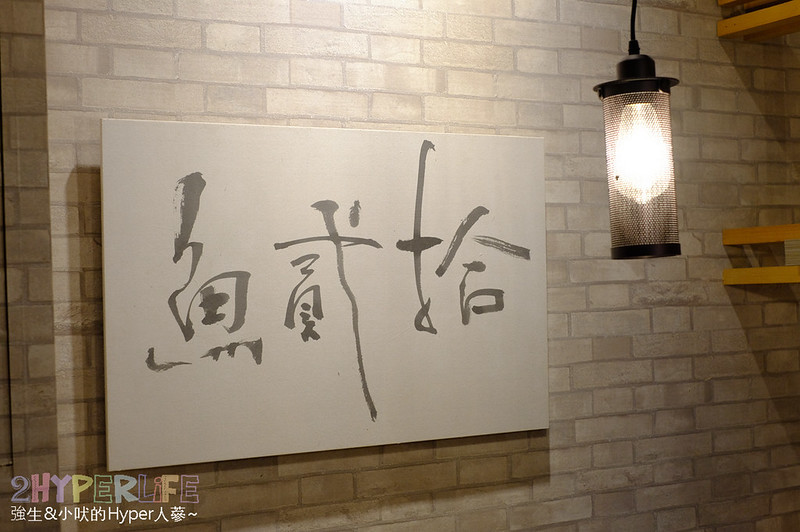 拾貳魚
2HYPERLiFE
強生&小吠的Hyper人蔘~